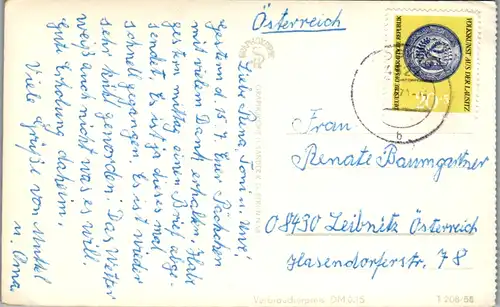 Österreich
Liebe Rena, Toni u. Uwe!
Gestern d. 15. 7. Euer Päckchen
mit vielem Dank erhalten. Habe
gestern mittag einen Brief abge-
sendet. Es ist ja dieses mal
schnell gegangen. Es ist wieder
sehr kühl geworden. Das Wetter
weiß auch nicht was es will.
Gute Erholung daheim,
Viele Grüße von Muttel
u. Oma
DEUTSCHE DEMOKRATISCHE REPUBLIK
VOLKSKUNST AUS DER LAUSITZ
20+5
b
Frau
Renate Baumgartner
08430 Leibnitz Österreich
Hasendorferstr. 78
Verbraucherpreis DM 0,15